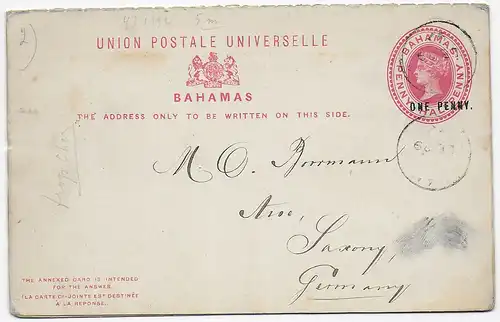 5 m
UNION POSTALE UNIVERSELLE
BAHAMAS
THE ADDRESS ONLY TO BE WRITTEN ON THIS SIDE.
BAHAMAS
ONE PENNY.
M O. Borrmann
Aue,
Saxony,
Germany
THE ANNEXED CARD IS INTENDED
FOR THE ANSWER.
(LA CARTE CI-JOINTE EST DESTINÉE
À LA RÉPONSE.)